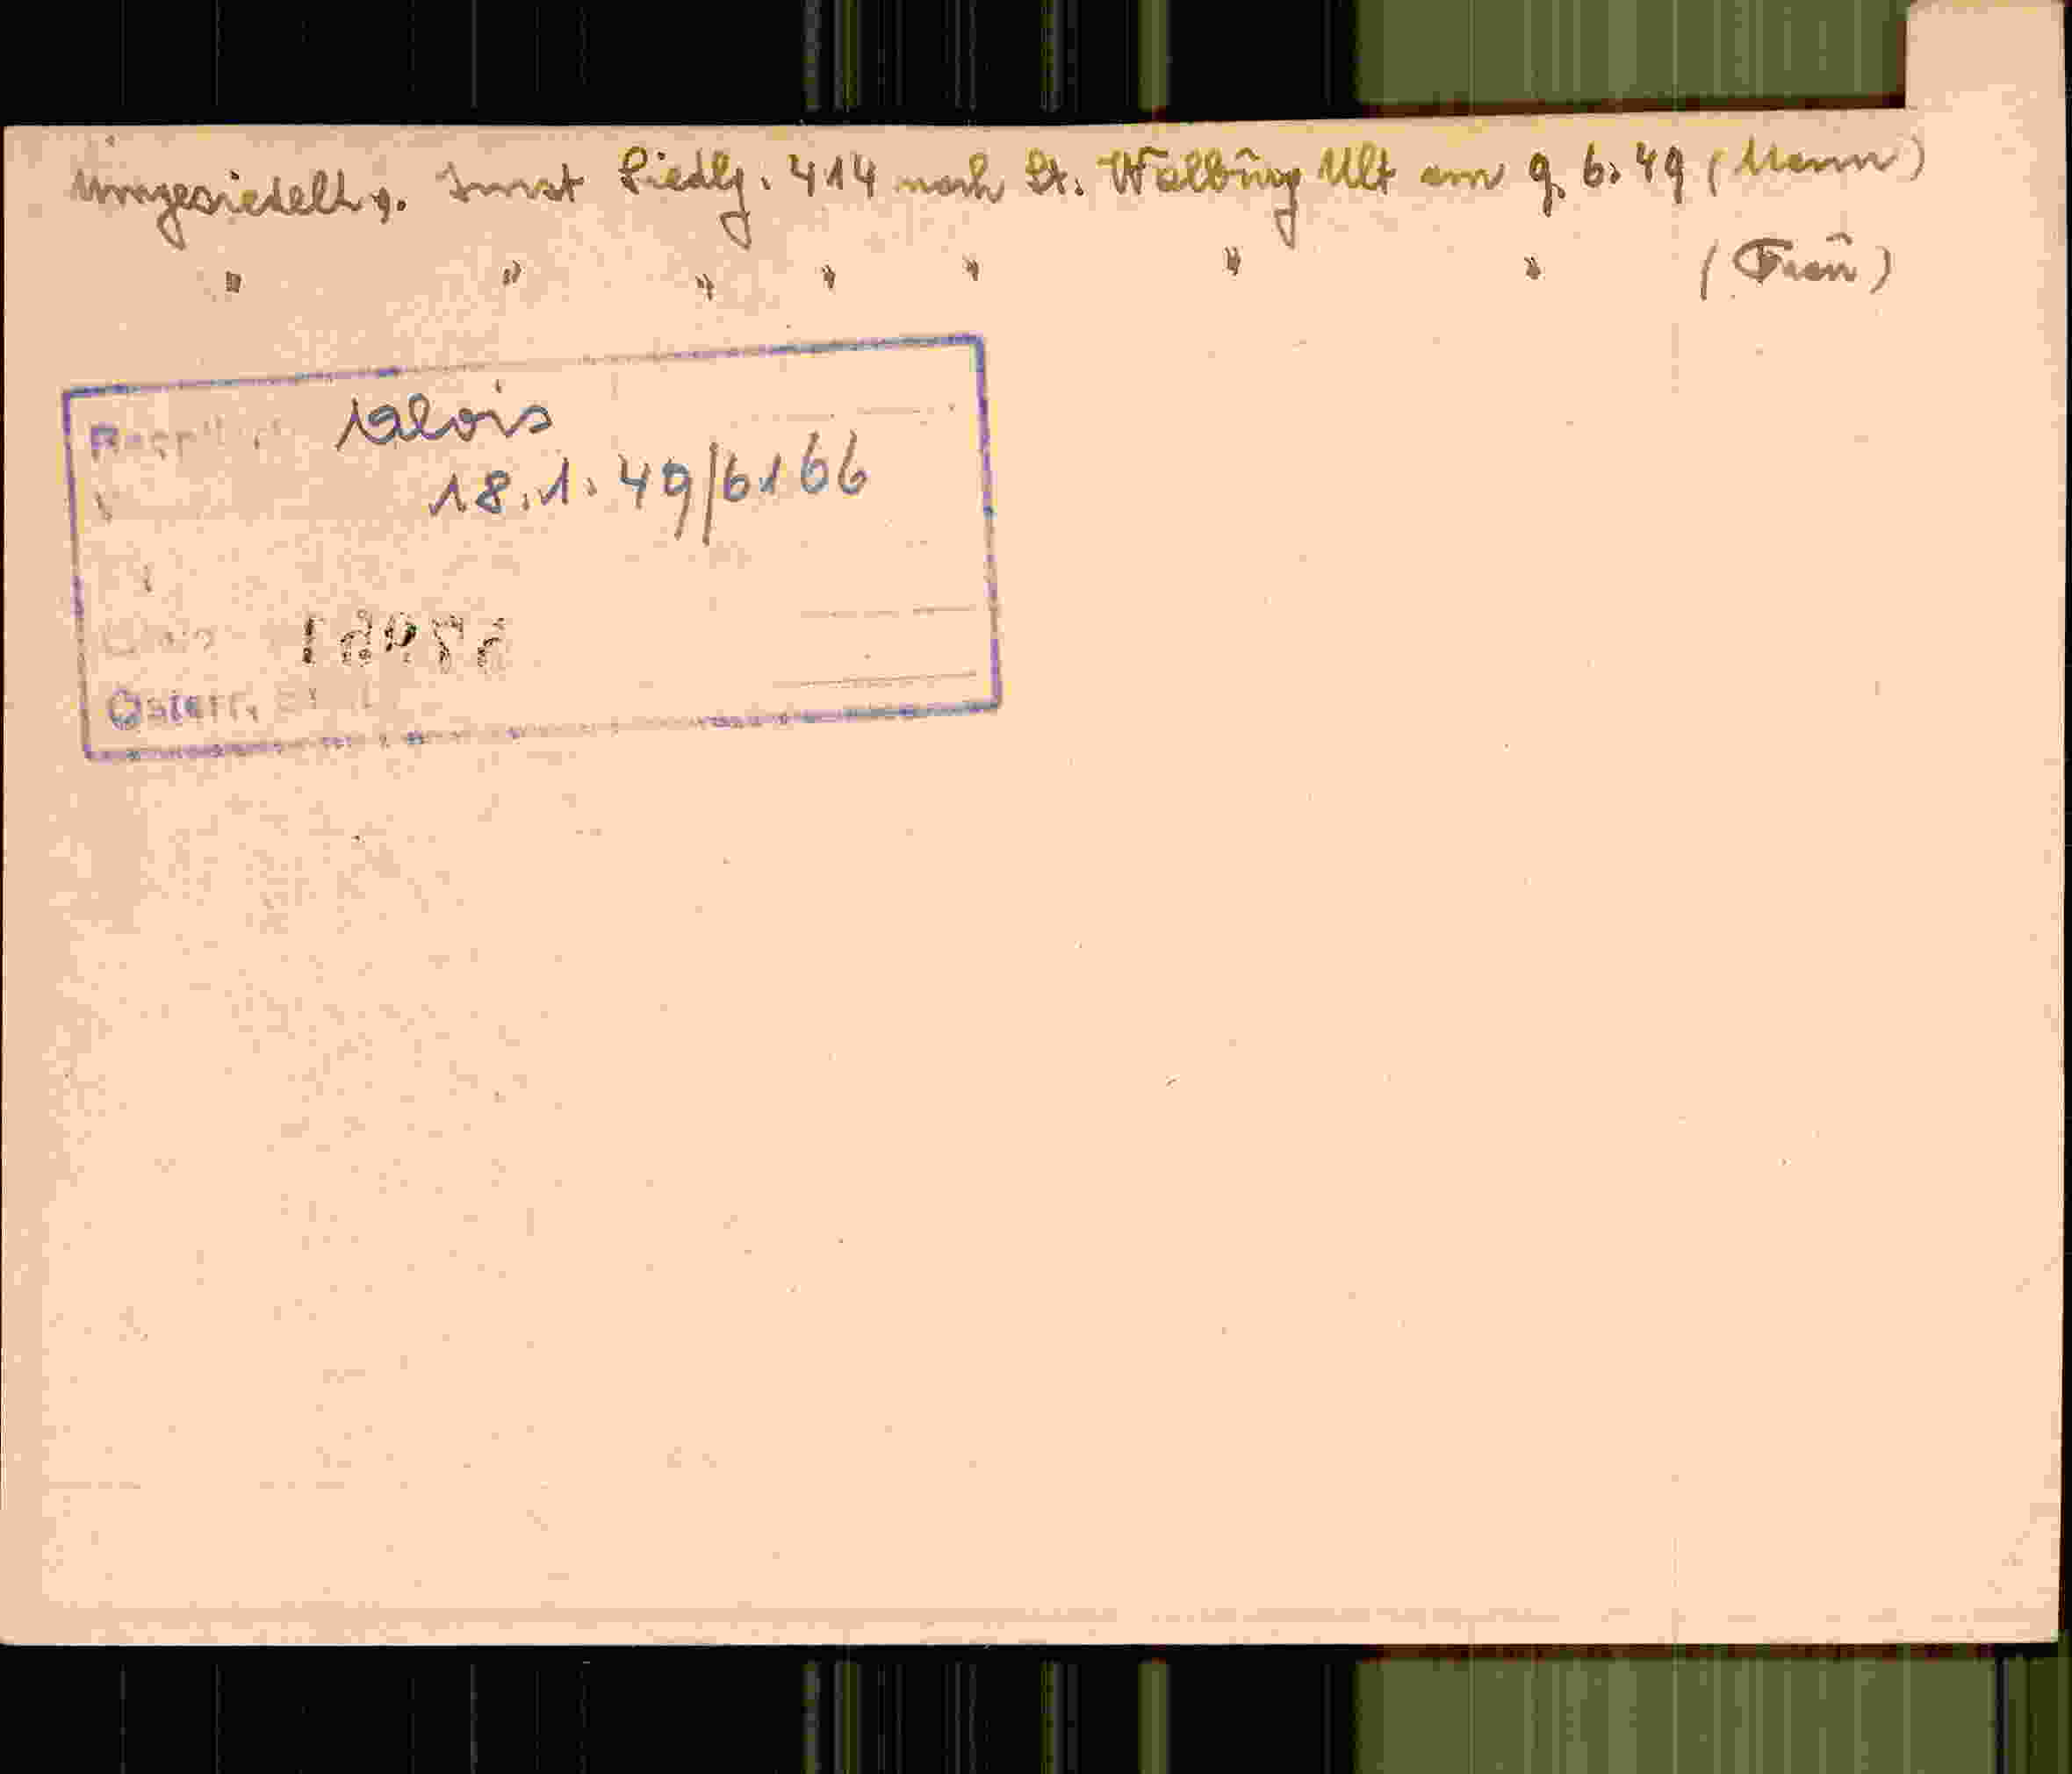 Umgesiedelt v. Imst Siedlg. 414 nach St. Walburg Ult am 9. 6. 49 (Mann)
" " " " " " " (Frau)
Alois
18.1.49/6166
Österr.